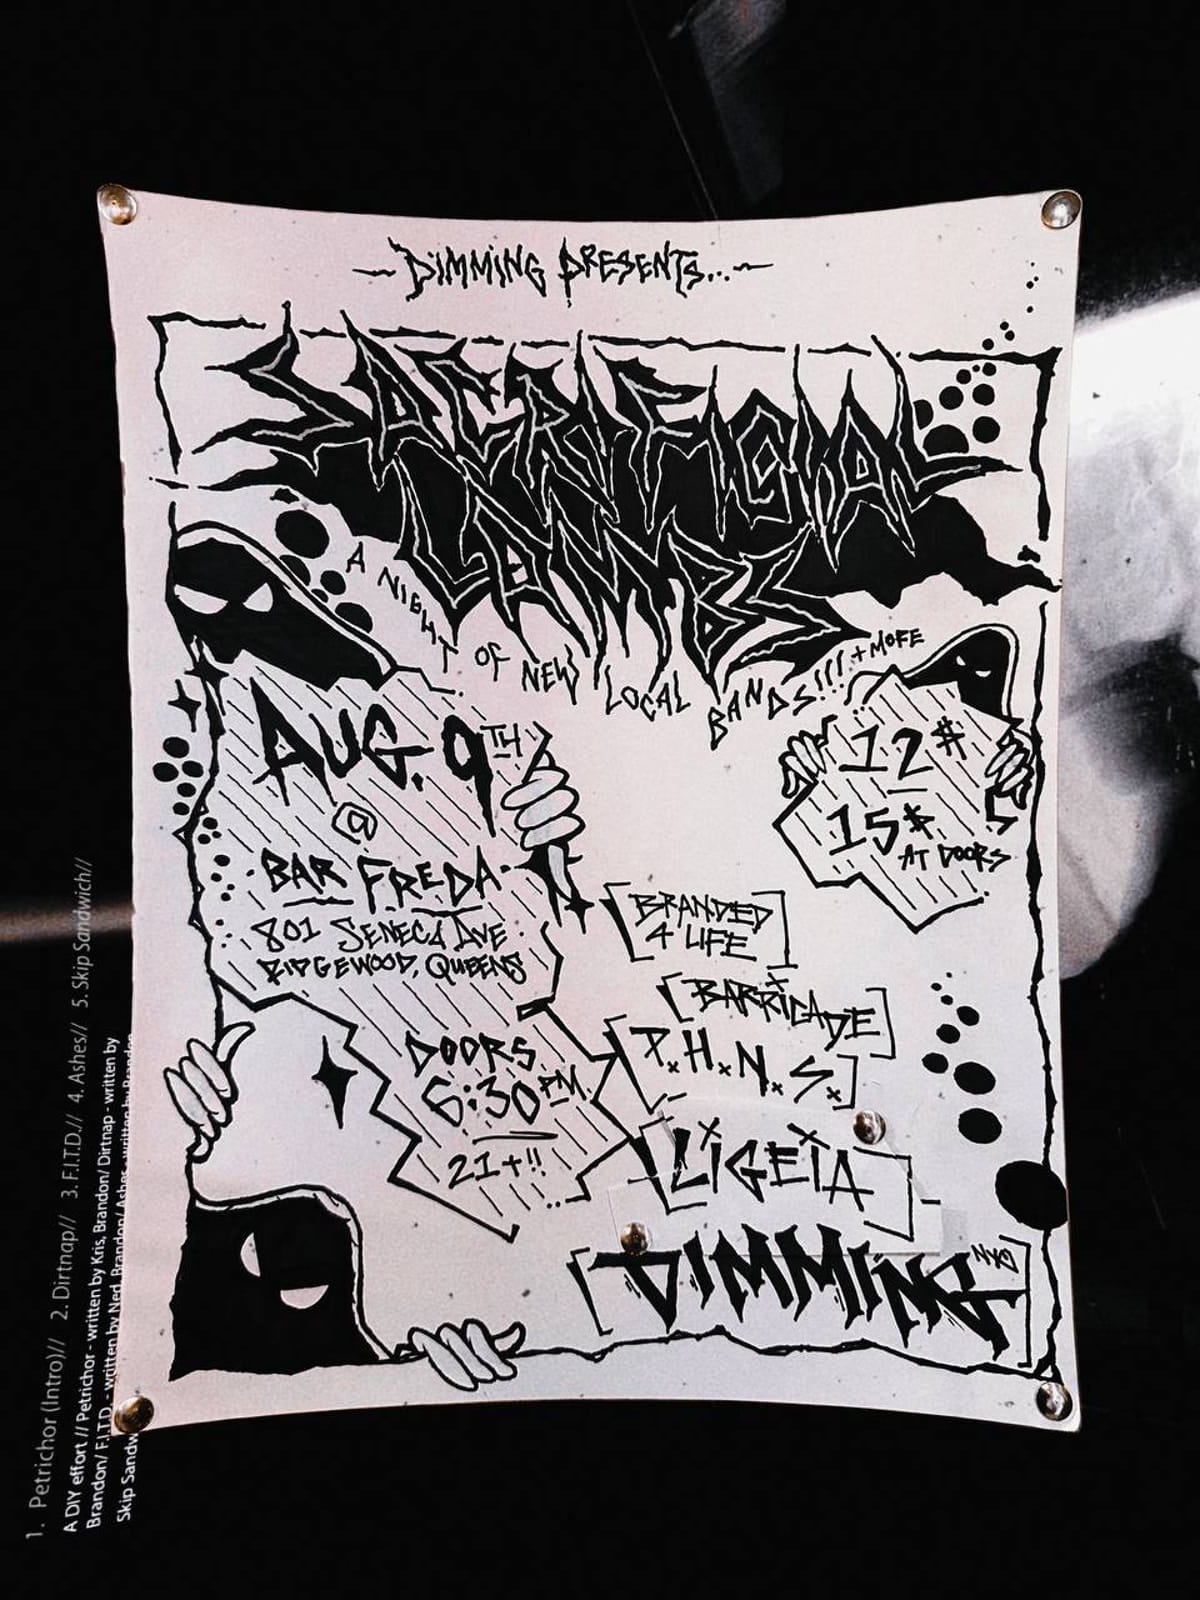 -DIMMING PRESENTS...-
SACRIFICIAL
LAMBS
A NIGHT OF NEW LOCAL BANDS!!! + MORE
AUG. 9TH
@
BAR FREDA
801 SENECA AVE
RIDGEWOOD, QUEENS
DOORS
6:30PM
21+!!
12$
15$
AT DOORS
BRANDED
4 LIFE
BARRICADE
P.H.N.S.
LIGEIA
DIMMING NYC
1. Petrichor (Intro)// 2. Dirtnap// 3. F.I.T.D.// 4. Ashes// 5. Skip Sandwich//
A DIY effort // Petrichor - written by Kris, Brandon/ Dirtnap - written by
Brandon/ F.I.T.D. - written by Ned, Brandon/ Ashes - written by Brandon
Skip Sandw